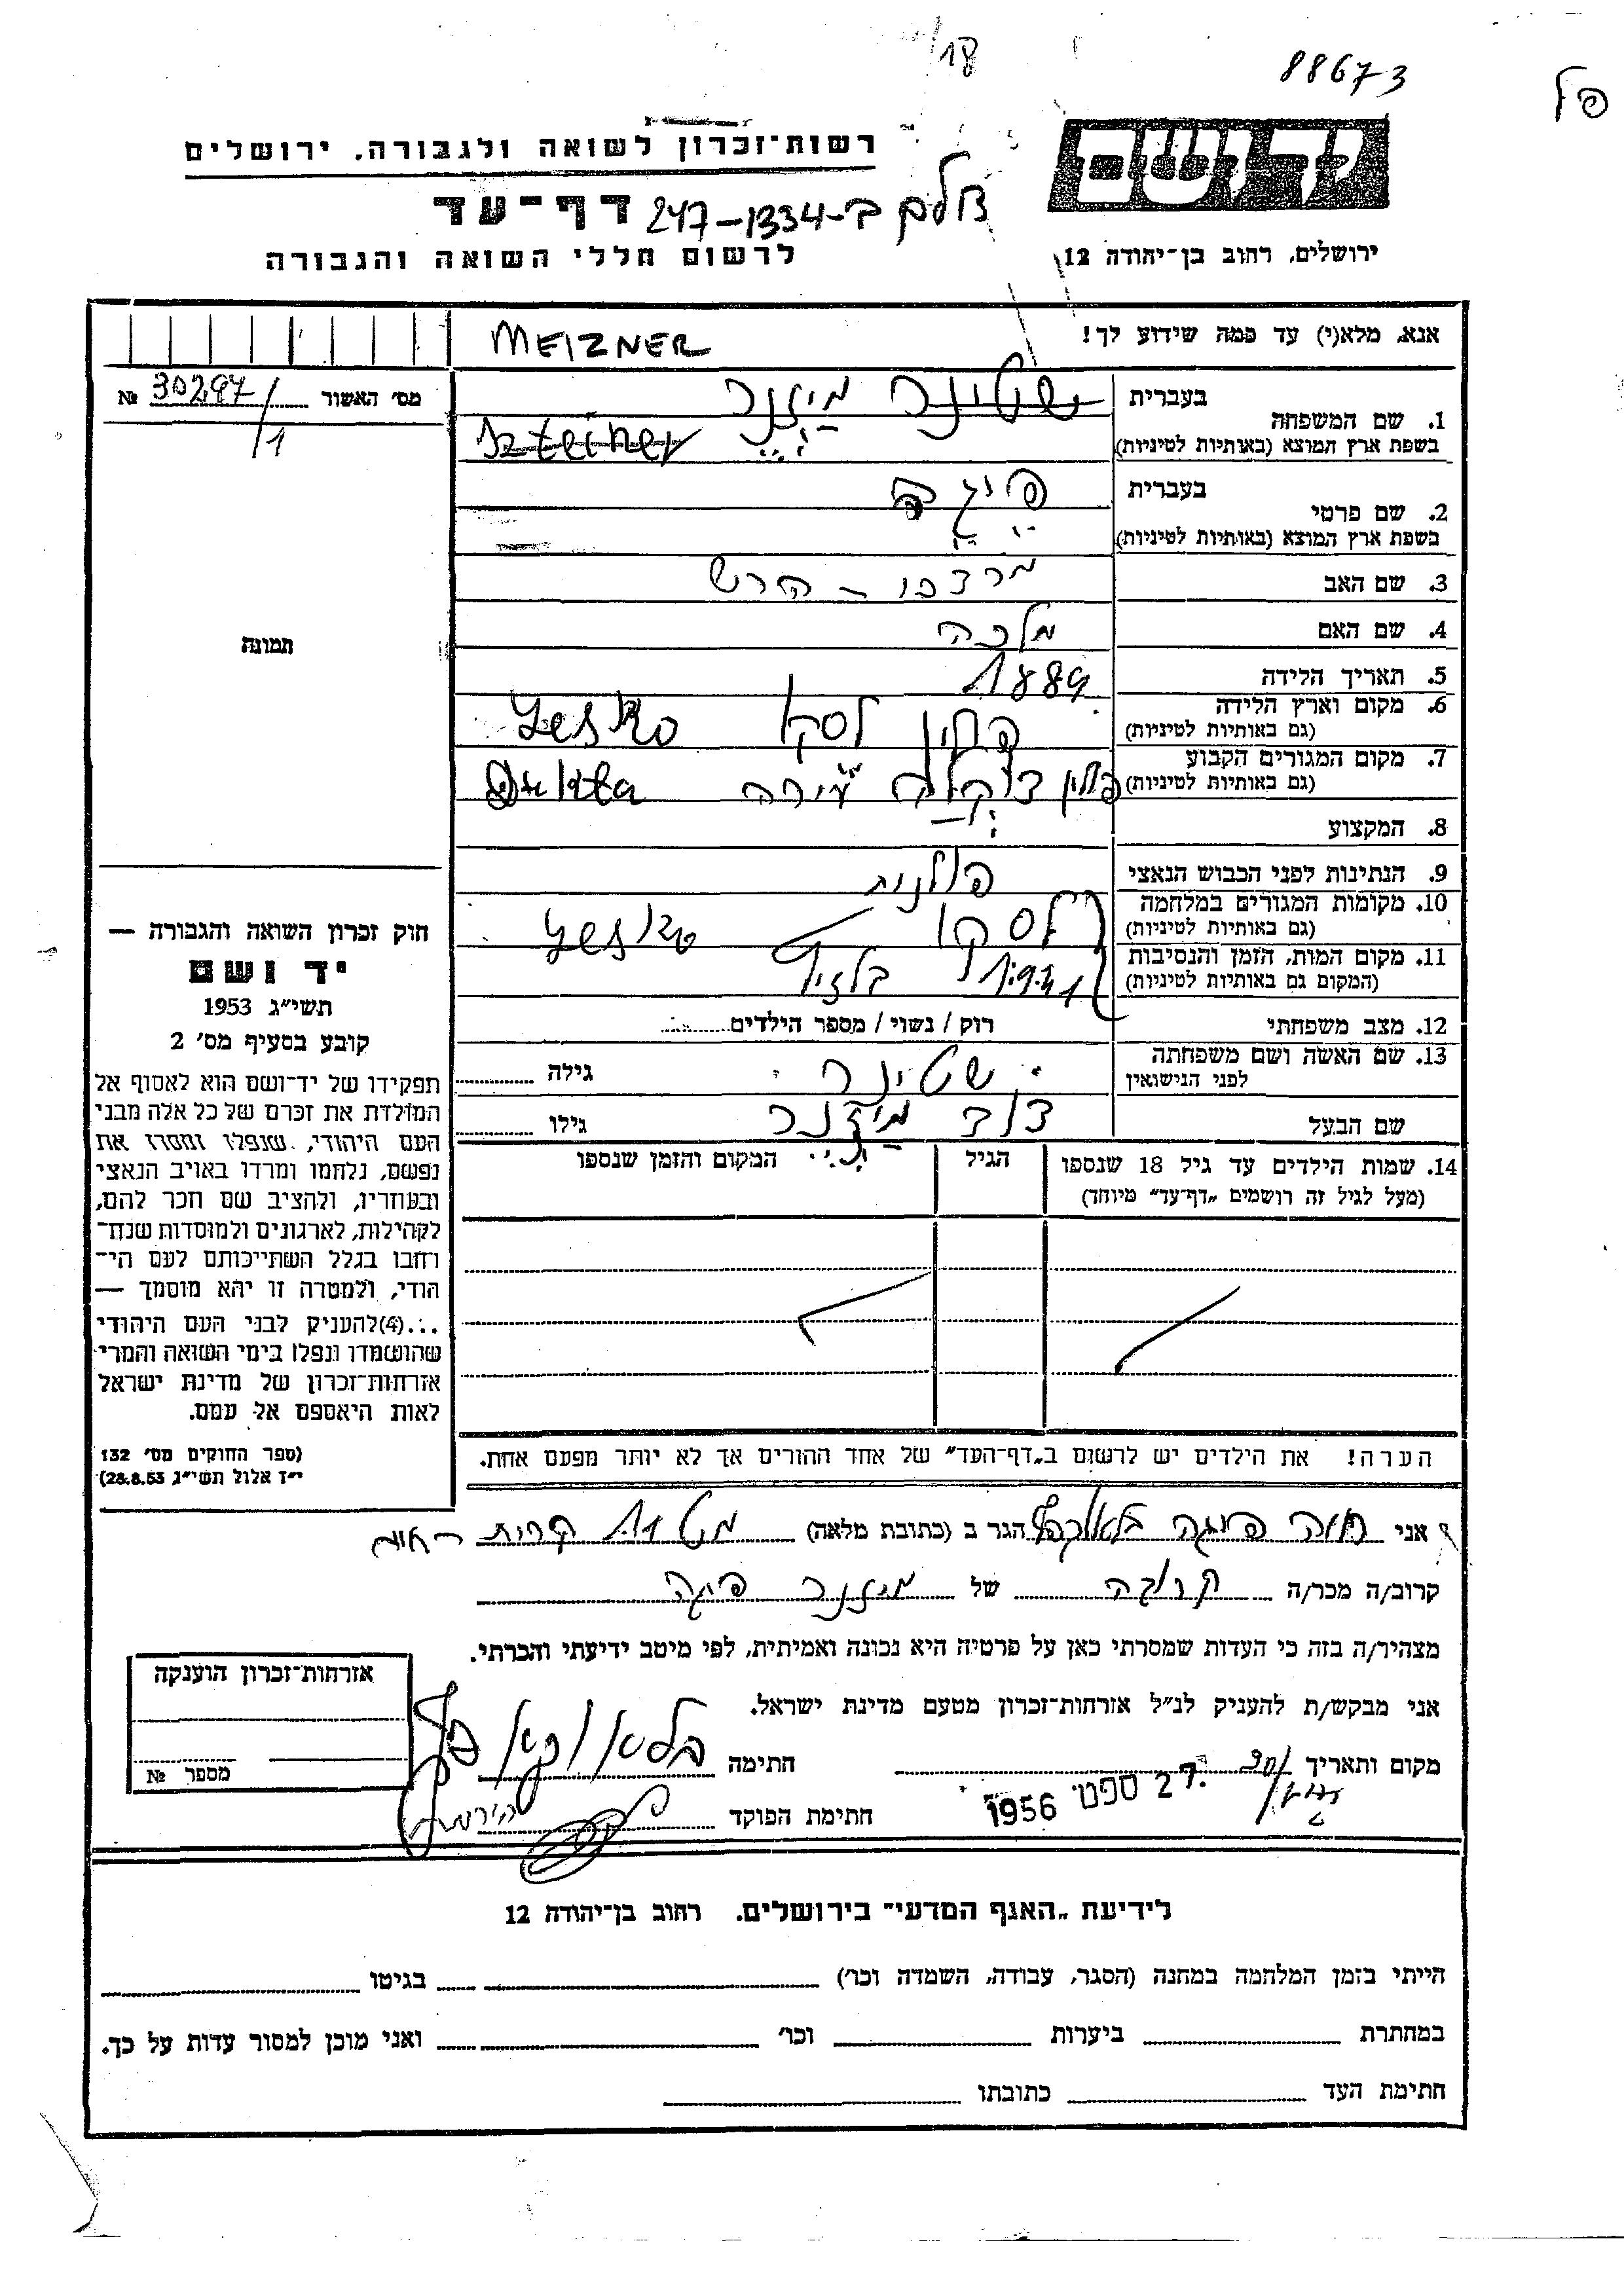 18
88673
פל
יד ושם
רשות־זכרון לשואה ולגבורה. ירושלים
דף־עד
צולם ב-247-1334
לרשום חללי השואה והגבורה
ירושלים, רחוב בן־יהודה 12
אנא, מלא(י) עד כמה שידוע לך!
MEIZNER
מס׳ האשור № 30297/1
1. שם המשפחה
בעברית שטינר מיזנר
בשפת ארץ המוצא (באותיות לטיניות) Szteiner
2. שם פרטי
בעברית פיגה
בשפת ארץ המוצא (באותיות לטיניות)
3. שם האב מרדכי - הרש
4. שם האם מלכה
5. תאריך הלידה 1889
6. מקום וארץ הלידה פולין לסקו Lesko
(גם באותיות לטיניות)
7. מקום המגורים הקבוע פולין דוקלה עירה Dukla
(גם באותיות לטיניות)
8. המקצוע
9. הנתינות לפני הכבוש הנאצי פולנית
10. מקומות המגורים במלחמה לסקו Lesko
(גם באותיות לטיניות)
11. מקום המות, הזמן והנסיבות 1941 בלזיץ
(המקום גם באותיות לטיניות)
12. מצב משפחתי רוק / נשוי / מספר הילדים
13. שם האשה ושם משפחתה שטינר גילה
לפני הנישואין
שם הבעל דוד מיזנר גילו
14. שמות הילדים עד גיל 18 שנספו הגיל המקום והזמן שנספו
(מעל לגיל זה רושמים „דף־עד״ מיוחד)
הערה! את הילדים יש לרשום ב„דף־העד״ של אחד ההורים אך לא יותר מפעם אחת.
תמונה
חוק זכרון השואה והגבורה —
יד ושם
תשי״ג 1953
קובע בסעיף מס׳ 2
תפקידו של יד־ושם הוא לאסוף אל
המולדת את זכרם של כל אלה מבני
העם היהודי, שנפלו ומסרו את
נפשם, נלחמו ומרדו באויב הנאצי
ובעוזריו, ולהציב שם וזכר להם,
לקהילות, לארגונים ולמוסדות שנח־
רבו בגלל השתייכותם לעם הי־
הודי, ולמטרה זו יהא מוסמך —
...(4)להעניק לבני העם היהודי
שהושמדו ונפלו בימי השואה והמרי
אזרחות־זכרון של מדינת ישראל
לאות היאספם אל עמם.
(ספר החוקים מס׳ 132
י״ז אלול תשי״ג, 28.8.53)
אני חוה פיגה הגר ב (כתובת מלאה) 11 קרית
קרוב/ה מכר/ה קרובה של מיזנר פיגה
מצהיר/ה בזה כי העדות שמסרתי כאן על פרטיה היא נכונה ואמיתית, לפי מיטב ידיעתי והכרתי.
אני מבקש/ת להעניק לנ״ל אזרחות־זכרון מטעם מדינת ישראל.
מקום ותאריך חתימה
27. ספט 1956
חתימת הפוקד
אזרחות־זכרון הוענקה
מספר №
לידיעת „האגף המדעי״ בירושלים. רחוב בן־יהודה 12
הייתי בזמן המלחמה במחנה (הסגר, עבודה, השמדה וכו׳) בגיטו
במחתרת ביערות וכו׳ ואני מוכן למסור עדות על כך.
חתימת העד כתובתו